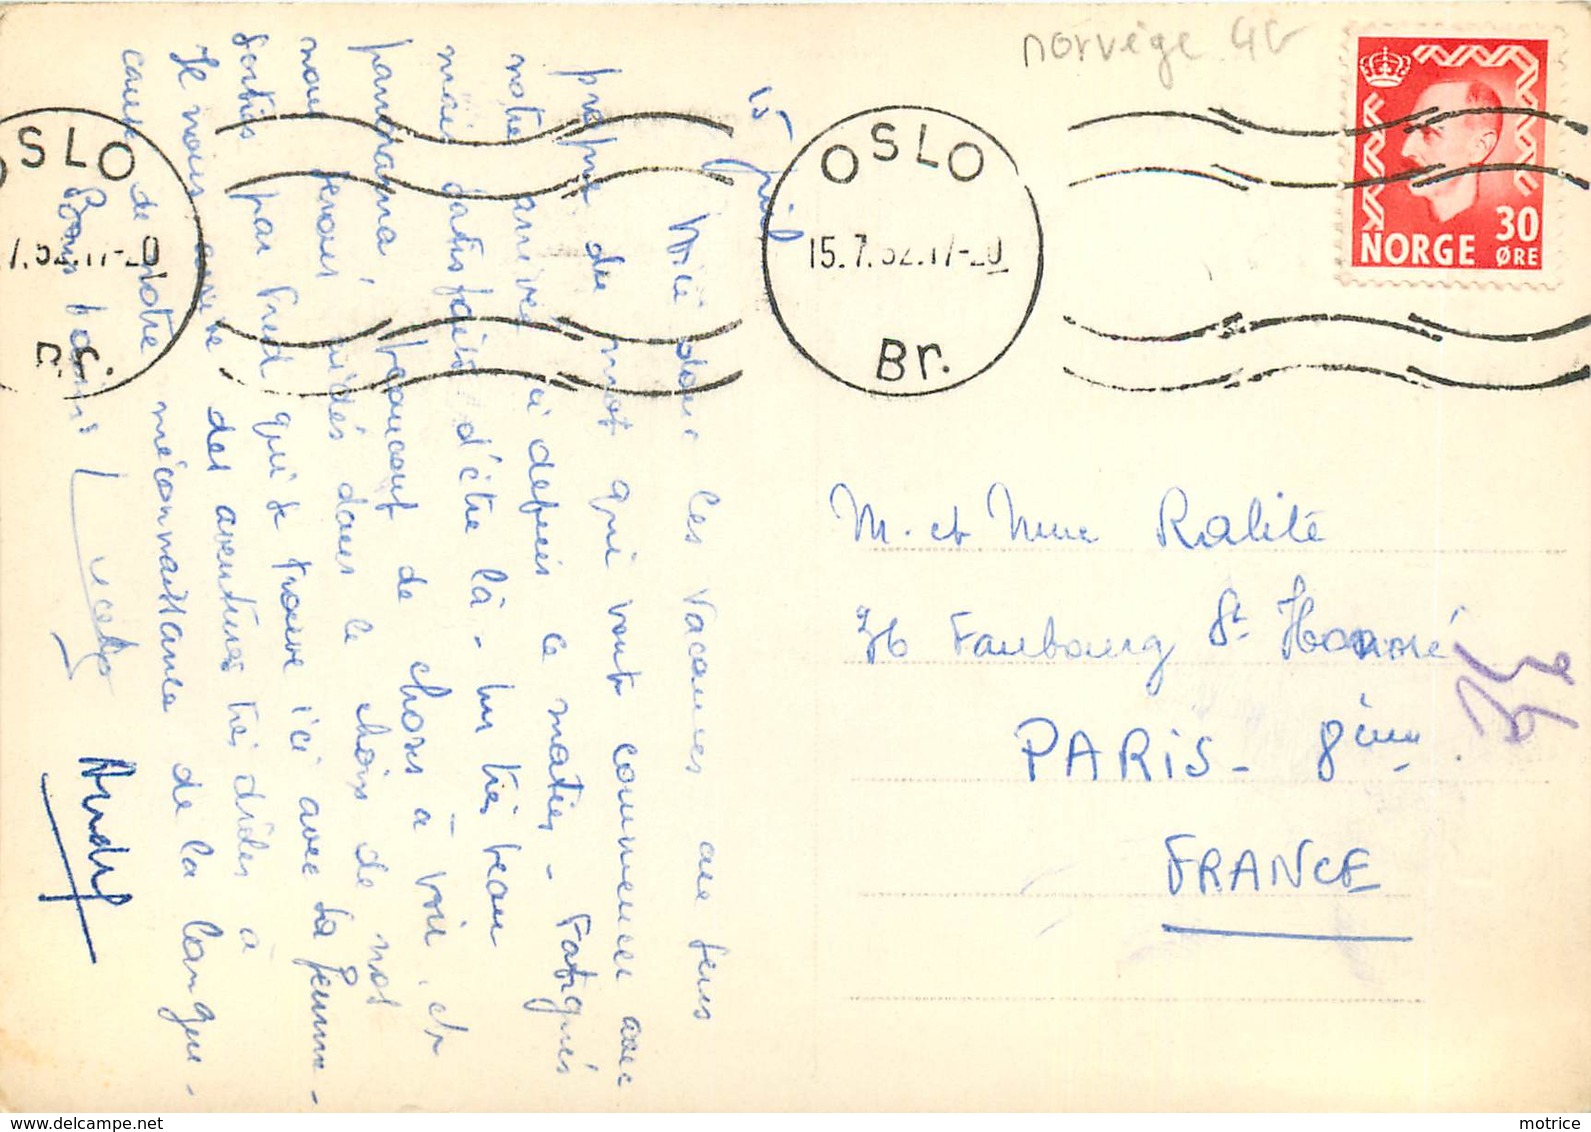 norvège
OSLO
15.7.52.17-20
Br.
OSLO
7.52.17-20
Br.
30
NORGE ØRE
15 Juil
Voici donc les vacances au sens
propre du mot qui vont commencer avec
notre arrivée ici depuis ce matin - Fatigués
mais satisfaits d'être là - un très beau
panorama, beaucoup de choses à voir, et
nous serons guidés dans le choix de nos
sorties par Fred qui se trouve ici avec sa femme -
Je nous arrive des aventures très drôles à
cause de notre méconnaissance de la langue -
Bons baisers
André
M. et Mme Ralité
76 Faubourg St Honoré
PARIS - 8ème
FRANCE
motrice